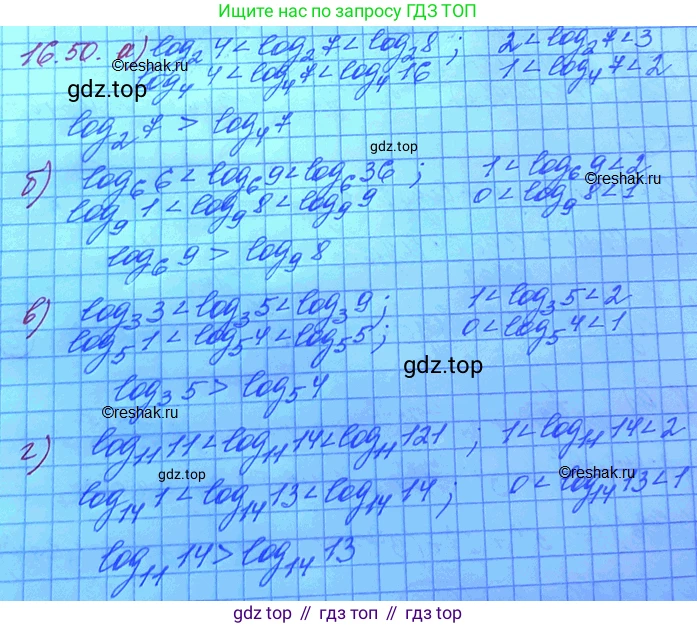 Ищите нас по запросу ГДЗ ТОП
16.50. а) log₂4 < log₂7 < log₂8 ; 2 < log₂7 < 3
©reshak.ru
log₄4 < log₄7 < log₄16 1 < log₄7 < 2
gdz.top
log₂7 > log₄7
gdz.top
б) log₆6 < log₆9 < log₆36 ; 1 < log₆9 < 2
©reshak.ru
log₉1 < log₉8 < log₉9 0 < log₉8 < 1
log₆9 > log₉8
в) log₃3 < log₃5 < log₃9 ; 1 < log₃5 < 2
log₅1 < log₅4 < log₅5 ; 0 < log₅4 < 1
gdz.top
log₃5 > log₅4
©reshak.ru
г) log₁₁11 < log₁₁14 < log₁₁121 ; 1 < log₁₁14 < 2
gdz.top
©reshak.ru
log₁₄1 < log₁₄13 < log₁₄14 ; 0 < log₁₄13 < 1
log₁₁14 > log₁₄13
gdz.top // гдз топ // gdz.top